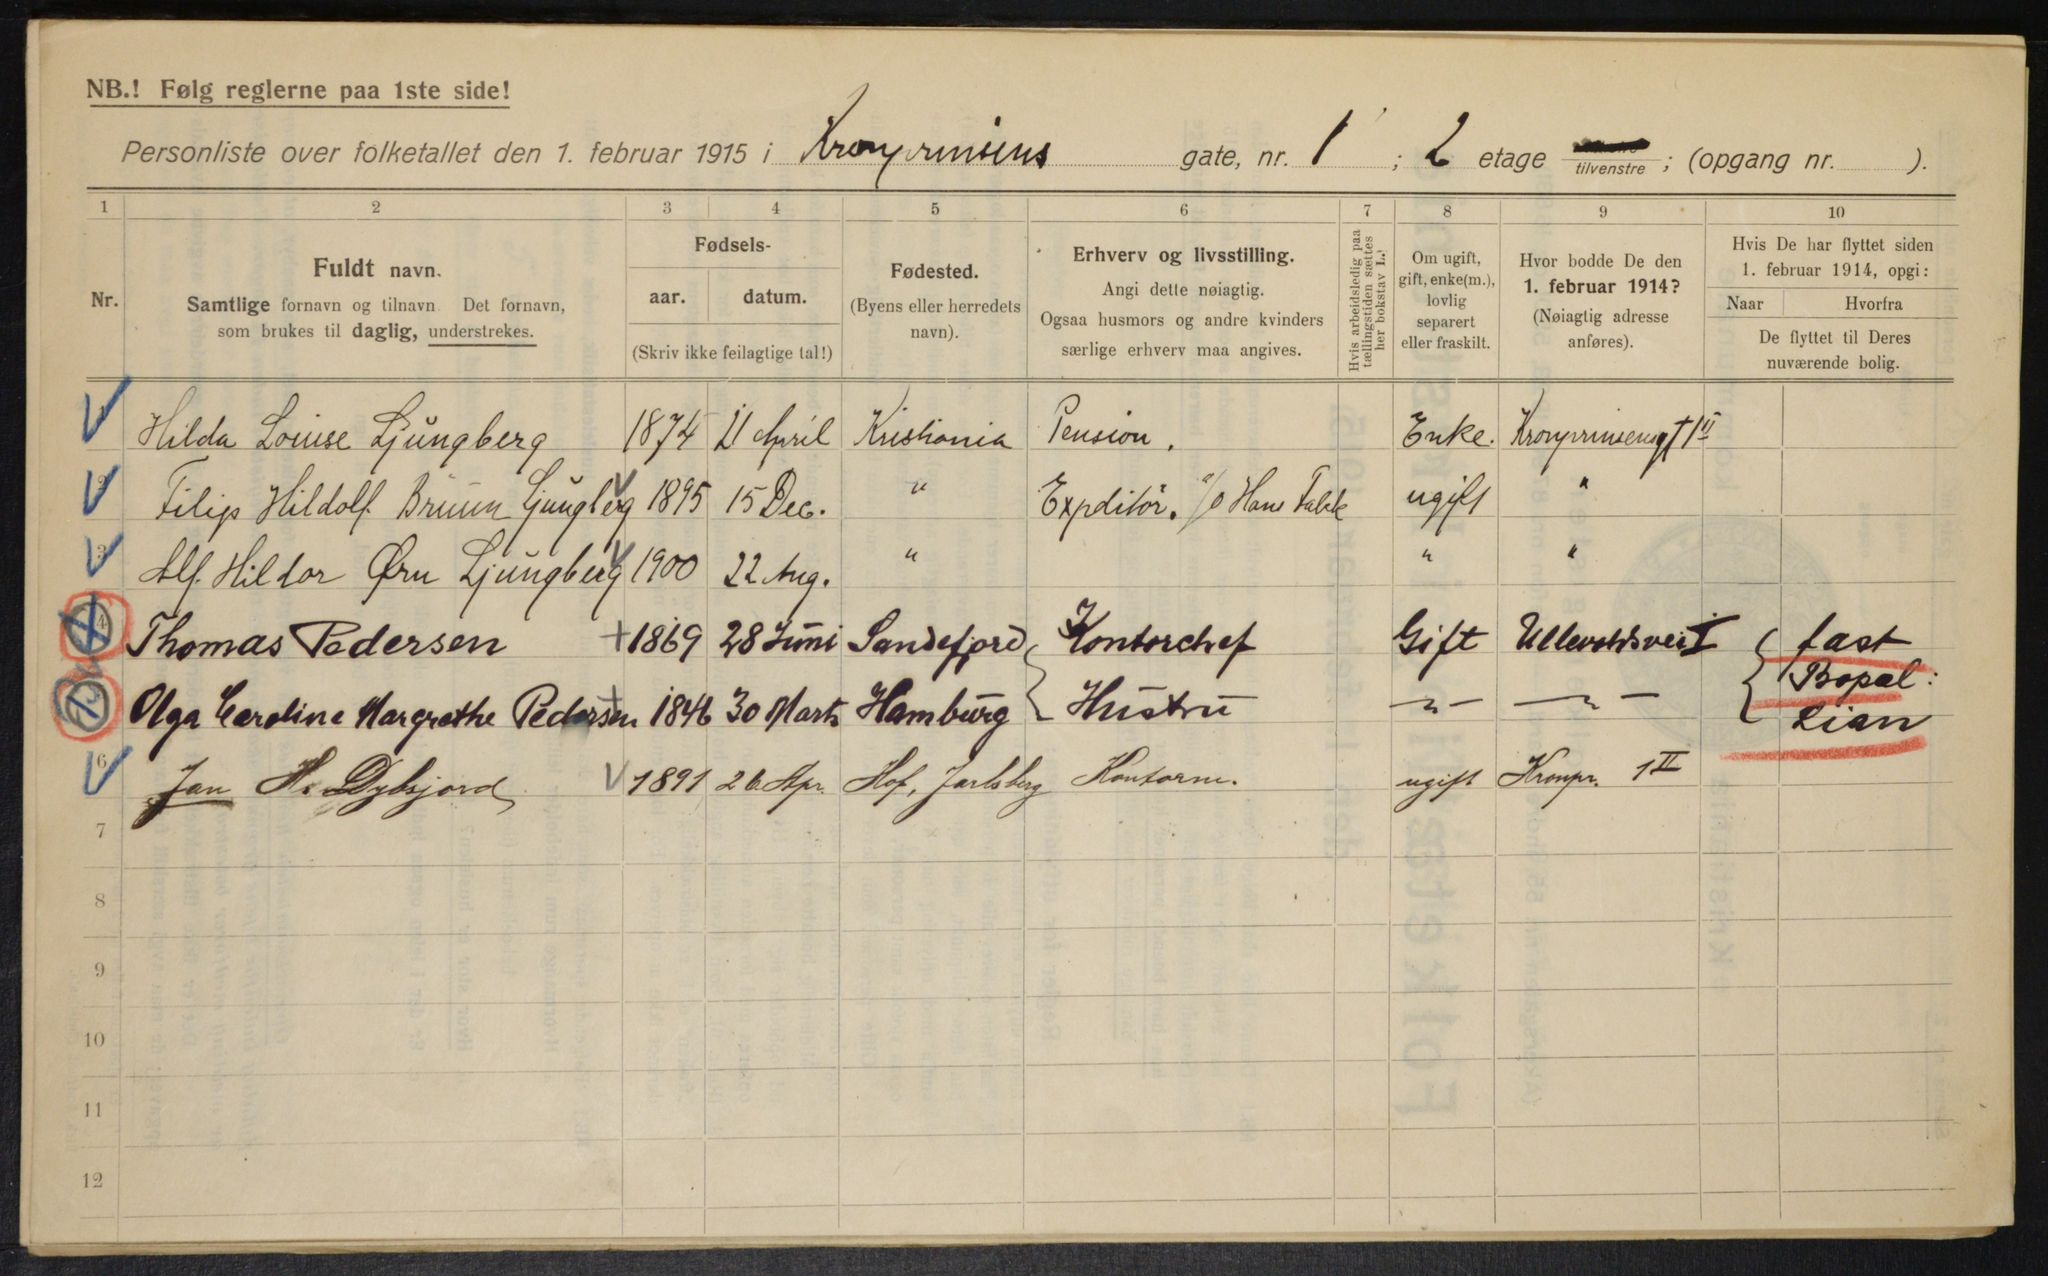 NB.! Følg reglerne paa 1ste side!
Personliste over folketallet den 1. februar 1915 i Kronprinsens gate, nr. 1 ; 2 etage tilvenstre ; (opgang nr. ).
1 2 3 4 5 6 7 8 9 10
Nr.
Fuldt navn.
Samtlige fornavn og tilnavn. Det fornavn,
som brukes til daglig, understrekes.
Fødsels-
aar. datum.
(Skriv ikke feilagtige tal!)
Fødested.
(Byens eller herredets
navn).
Erhverv og livsstilling.
Angi dette nøiagtig.
Ogsaa husmors og andre kvinders
særlige erhverv maa angives.
Hvis arbeidsledig paa
tællingstiden sættes
her bokstav L.
Om ugift,
gift, enke(m.),
lovlig
separert
eller fraskilt.
Hvor bodde De den
1. februar 1914?
(Nøiagtig adresse
anføres).
Hvis De har flyttet siden
1. februar 1914, opgi:
Naar Hvorfra
De flyttet til Deres
nuværende bolig.
Hilda Louise Ljungberg 1874 21 April Kristiania Pension. Enke. Kronprinsensgt 1 II
2 Filip Hildolf Bruun Ljungberg 1895 15 Dec. " Expeditør. a/o Hans Falck ugift "
3 Alf Hildor Ørn Ljungberg 1900 22 Aug. " " "
4 Thomas Pedersen 1869 28 Juni Sandefjord Kontorchef Gift Ullevoldsvei I fast
Olga Caroline Margrethe Pedersen 1846 30 Marts Hamburg Hustru —"— —"— Bopæl:
Lian
6 Jan H. Dybsjord 1891 26 Apr. Hof, Jarlsberg Kontorm. ugift Kronpr. 1 II
7
8
9
10
11
12